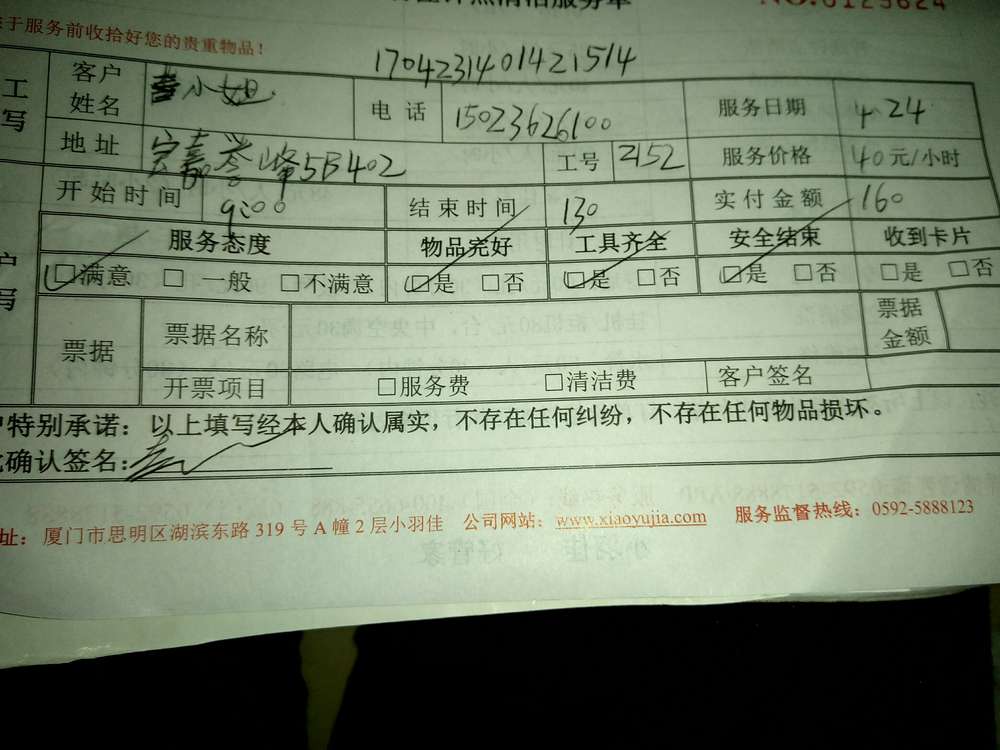 清洁服务单
NO.0125624
于服务前收拾好您的贵重物品！
1704231401421514
工 客户姓名 小姐 电话 15023626100 服务日期 4.24
写 地址 誉峰5B402 工号 2152 服务价格 40元/小时
开始时间 9:00 结束时间 130 实付金额 160
户 服务态度 物品完好 工具齐全 安全结束 收到卡片
写 ☑满意 □一般 □不满意 ☑是 □否 ☑是 □否 ☑是 □否 □是 □否
票据 票据名称 票据金额
开票项目 □服务费 □清洁费 客户签名
户特别承诺：以上填写经本人确认属实，不存在任何纠纷，不存在任何物品损坏。
此确认签名：
址：厦门市思明区湖滨东路 319 号 A 幢 2 层小羽佳 公司网站：www.xiaoyujia.com 服务监督热线：0592-5888123